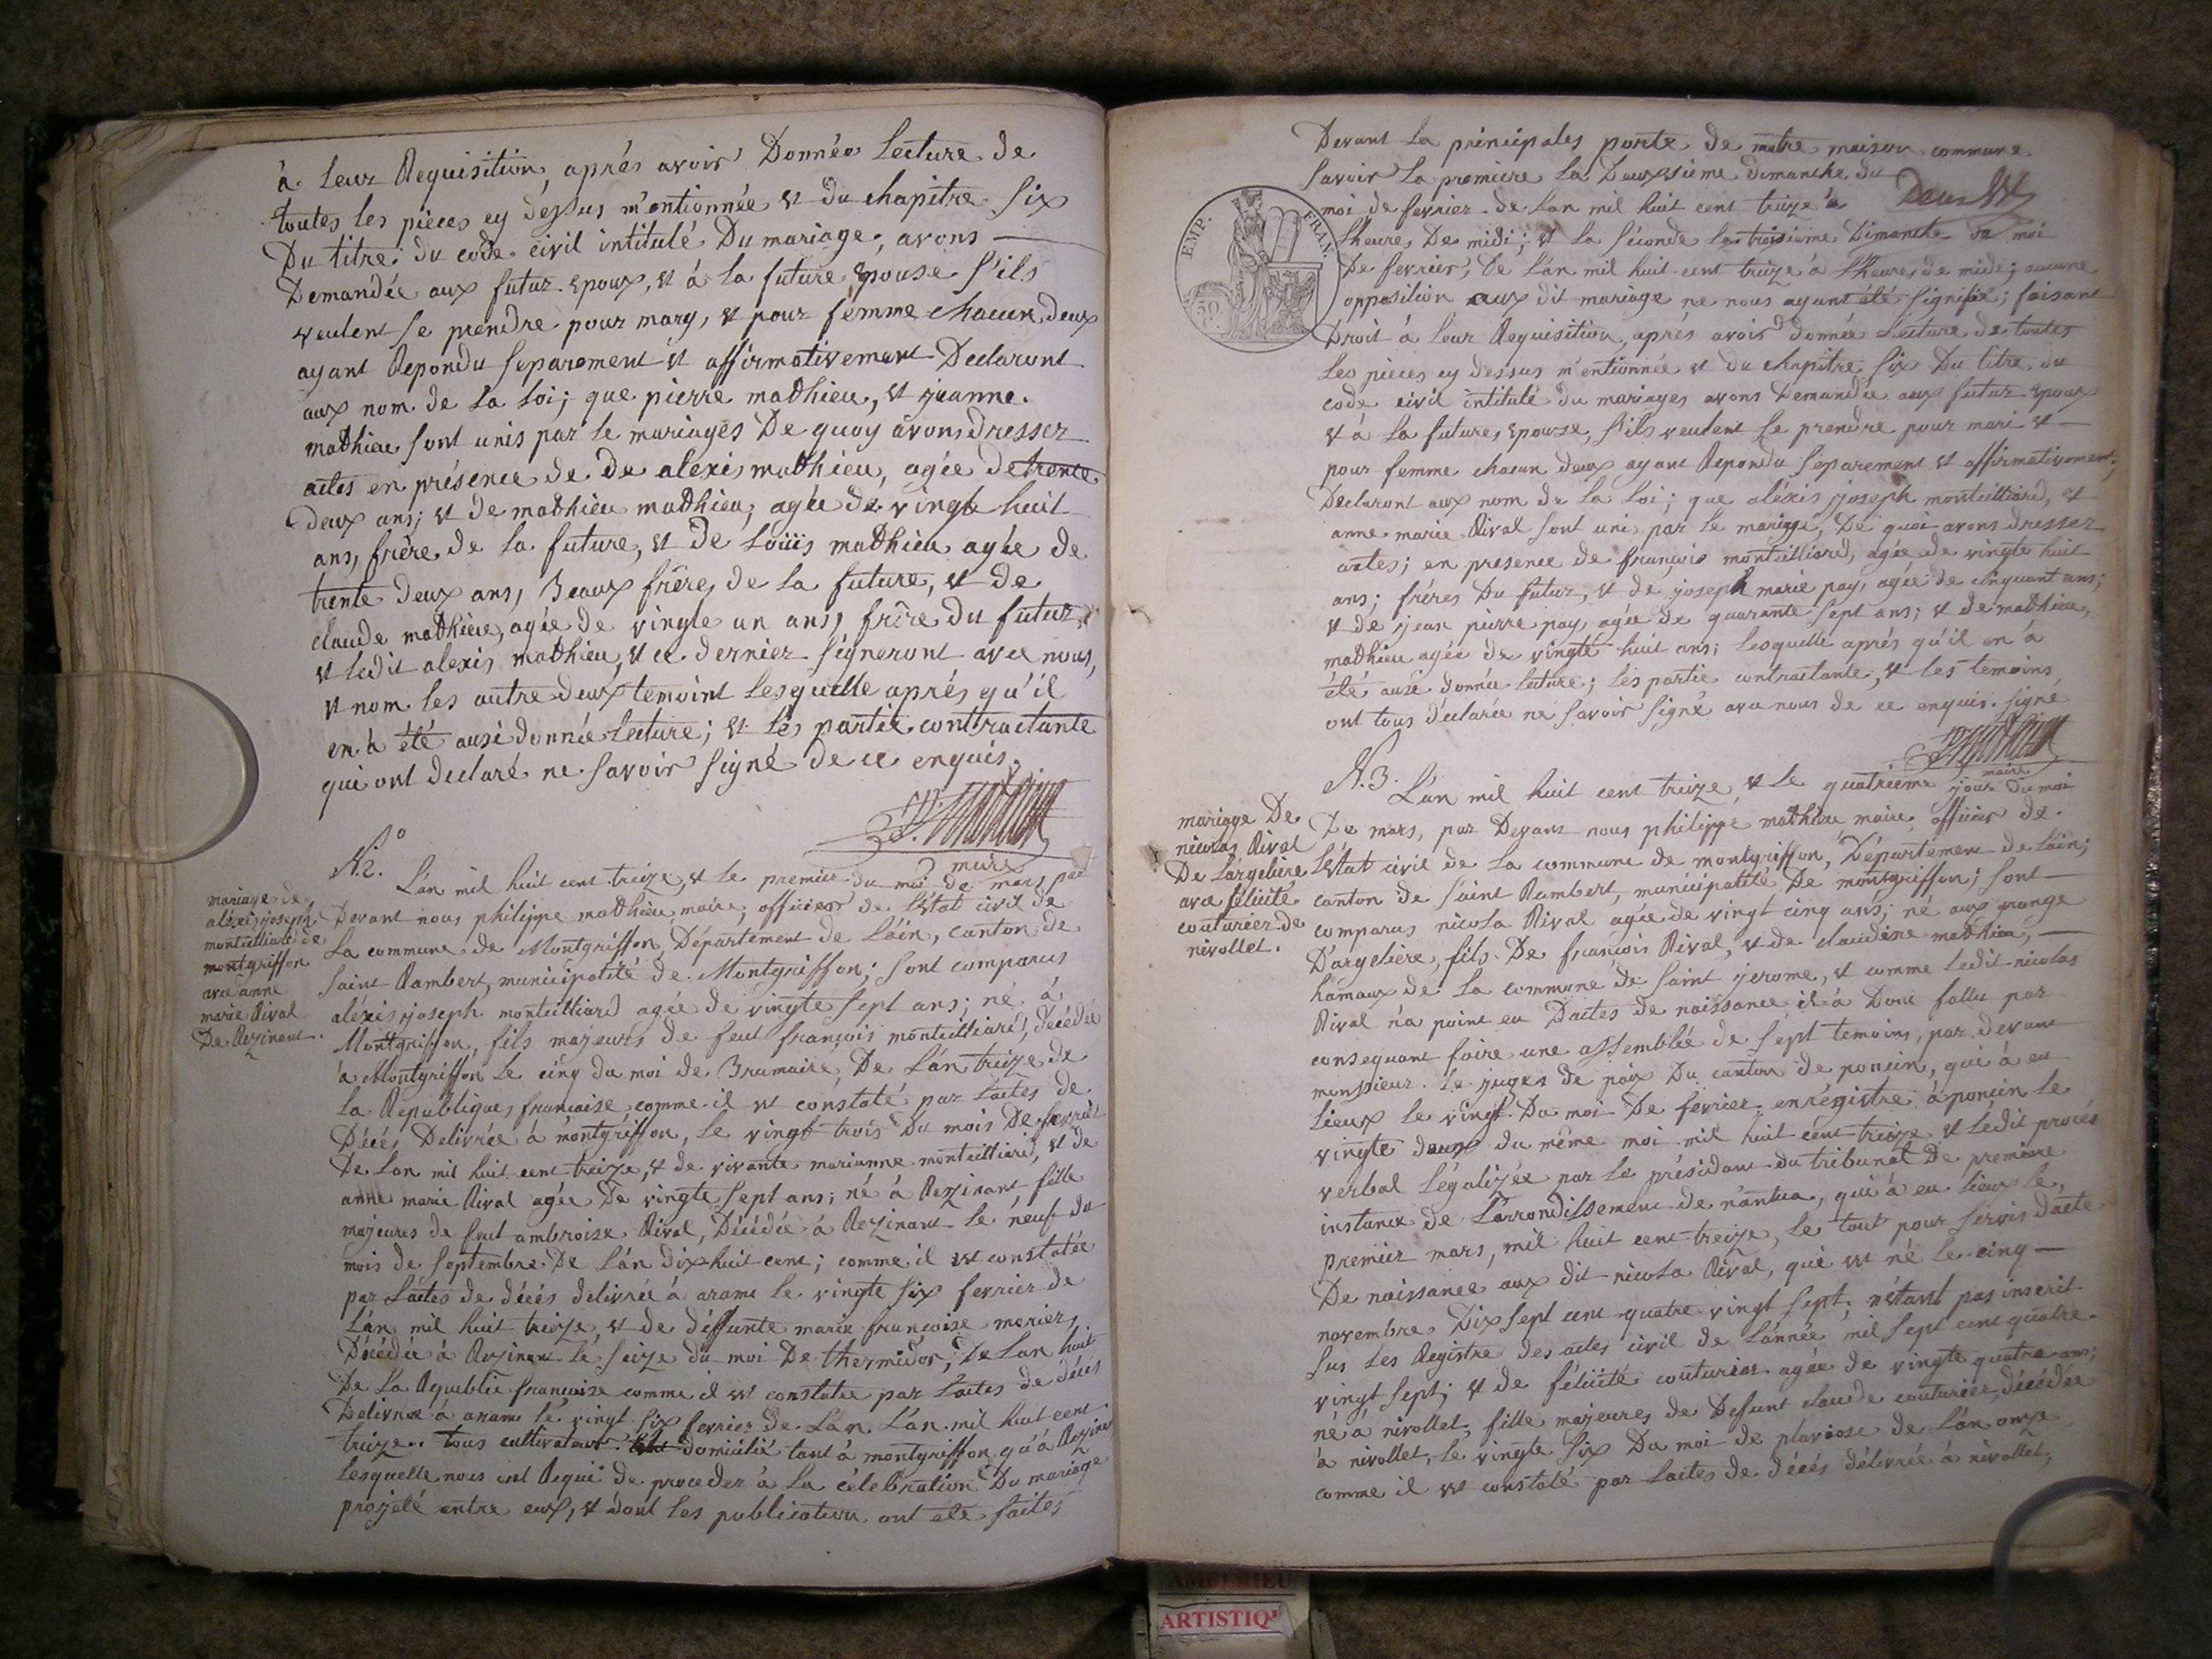 à leur Requisition, aprés avoir Donnée lecture de
toutes les pièces cy dessus mentionnée et du chapitre Six
Du titre du code civil intitulé Du mariage, avons
Demandée aux futur époux, et à la future épouse s'ils
veulent se prendre pour mary, et pour femme chacun deux
ayant Repondu separement et affirmativement Declaront
aux nom de la loi; que pierre mathieu, et jeanne
mathieu sont unis par le mariages De quoy avons dresser
actes en présence de de alexis mathieu, agée de trente
deux ans; et de mathieu mathieu, agée de vingt huit
ans, frère de la future, et de Loüis mathieu agée de
trente deux ans, Beaux frère, de la future, et de
claude mathieu, agée de vingte un ans, frère du futur
et ledit alexis mathieu, et ce dernier signeront avec nous,
et nom les autre deux temoint lesquelle aprés qu'il
en à été ausi donnée lecture; et lés partie contractante
qui ont declaré ne savoir signé de ce enquis.
P. Mathieu
maire
N.2.
mariage de
aléxis joseph
montcilliard de
montgriffon
avec anne
marie Rival
De Rezinant.
L'an mil huit cent treize, et le premier du moi de mars par
Devant nous philippe mathieu, maire, officier de l'état civil de
la commune de Montgriffon, Département de l'ain, canton de
saint Rambert, municipatité de Montgriffon; sont comparus
aléxis joseph montcilliard agée de vingte sept ans; né à
Montgriffon, fils majeurs de feut françois montcilliard, decédée
à Montgriffon le cinq du moi de Brumaire, De l'an treize de
la Republiques francaise comme il et constaté par lactes de
Décés Delivrée à montgriffon, le vingt trois Du mois De fevrier
De l'an mil huit cent treize, et de vivante marianne montcilliard, et de
anne marie Rival agée De vingte sept ans; né à Rezinant, fille
majeures de feut ambroise Rival, Décédée à Rezinant le neuf du
mois de septembre De l'an dix huit cent; comme il et constatée
par lactes de décés delivrée à aranc le vingte six fevrier de
l'an mil huit treize, et de déffunte marie françoise
Décédée à Rezinant le seize du moi De thermidor, De l'an huit
De la Republic francoise comme il et constatée par lactes de décés
Delivrée à aranc le vingt six fevrier de l'an l'an mil huit cent
treize. tous cultivateur domicilié tant à montgriffon qu'à Rezinant
lesquelle nous ont Requi de proceder à la célébration Du mariage
projeté entre eux, et dont les publication ont été faites
Devant la principales porte de notre maison commune
savoir la premiere la Deuxsieme dimanche du
moi de fevrier de l'an mil huit cent treize à
l'heure, De midi; et la séconde le troisieme Dimanche du moi
De fevrier, De l'an mil huit cent treize à l'heure, de midi; aucune
opposition aux dit mariage ne nous ayant été signifié; faisant
Droit à leur Requisition, aprés avoir donnée lecture de toutes
les pieces cy dessus mentionnée et du chapitre six Du titre du
code civil intitulé du mariages avons Demandée aux futur époux
et à la future, épouse, s'ils veulent se prendre pour mari et
pour femme chacun deux ayant Repondu séparement et affirmativement,
Declaront aux nom de la loi; que aléxis joseph montcilliard, et
anne marie Rival sont uni par le mariage, De quoi avons dresser
actes; en presence de françois montcilliard, agée de vingte huit
ans; fréres Du futur, et de joseph marie pay, agée de cinquant ans;
et de jean pierre pay, agée de quarante sept ans; et de mathieu,
mathieu agée de vingte huit ans; lesquelle aprés qu'il en à
été ausi donnée lecture; lés partie contractante, et les temoins
ont tous déclarée ne savoir signé avec nous de ce enquis. signé
P. Mathieu
maire
EMP.
FRAN.
50
N.3.
mariage De
nicolas Rival
De l'argeliere
avec félicité
couturier de
nivollet.
L'an mil huit cent treize, et le quatrieme jour du moi
De mars, par Devant nous philippe mathieu maire, officier de
l'état civil de la commune de montgriffon, Département de l'ain;
canton de saint Rambert, municipatité De montgriffon; sont
comparus nicola Rival agée de vingt cinq ans; né aux grange
D'argeliere, fils De francois Rival, et de claudine mathieu,
hamaux de la commune de saint jerome, et comme ledit nicolas
Rival n'a point eu D'actes de naissance, il à Donc fallu par
consequant faire une assemblée de sept temoins, par devant
monsieur le juges de paix Du canton de poncin, qui à eu
lieux le vingt Du moi De fevrier enrégistre à poncin le
vingte deux du même moi mil huit cent treize et lédit procés
verbal légalizée par le présidant du tribunal De premiere
instance de l'arrondissement de nantua, qui à eu lieux le,
premier mars, mil huit cent treize, le tout pour servir dacte
De naissance aux dit nicola Rival, qui et né le cinq
novembre Dix sept cent quatre vingt sept, n'étant pas inscrit
sus les Registre des actes civil de l'année mil sept cent quatre
vingt sept; et de félicité couturier agée de vingte quatre ans;
né à nivollet, fille majeures de Defunt claude couturier, décédée
à nivollet, le vingte six Du moi de pluviose de l'an onze
comme il et constaté par lactes de décés délivrée à nivollet,
ARTISTIQ